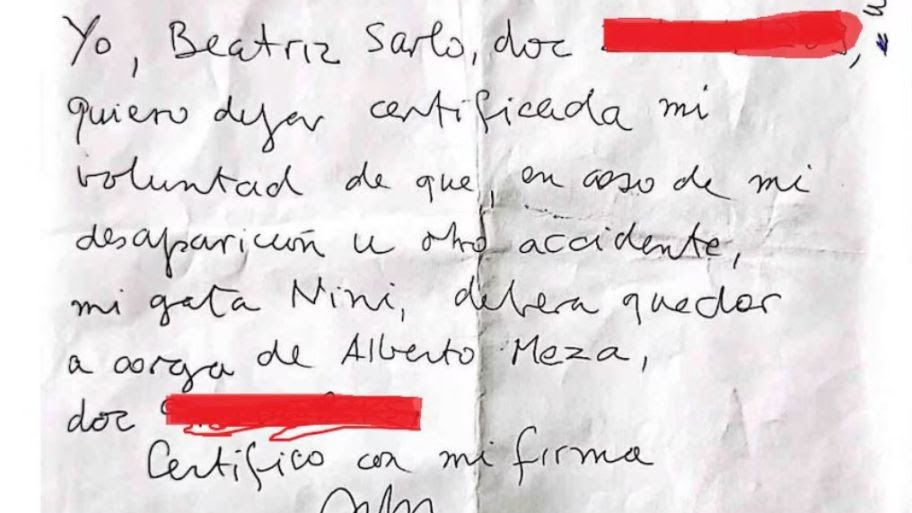 Yo, Beatriz Sarlo, doc
quiero dejar certificada mi
voluntad de que, en caso de mi
desaparición u otro accidente,
mi gata Nini, debera quedar
a carga de Alberto Meza,
doc
Certifico con mi firma